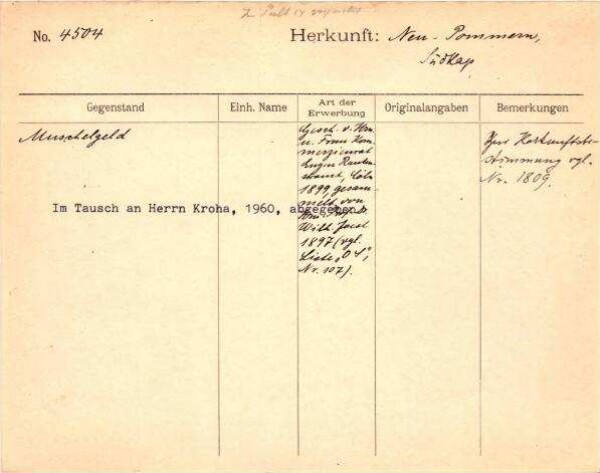 No. 4504
Herkunft: Neu-Pommern,
Südkap
Gegenstand
Einh. Name
Art der
Erwerbung
Originalangaben
Bemerkungen
Muschelgeld
Gesch. v. Hrn.
u. Frau Kom-
merzienrat
Eugen Rauten-
strauch, Cöln
1899, gesam-
melt von
Wilh. Joest
1897 (vgl.
Liste "O4",
Nr. 107).
Zur Herkunftsbe-
stimmung vgl.
Nr. 1809.
Im Tausch an Herrn Kroha, 1960, abgegeben.